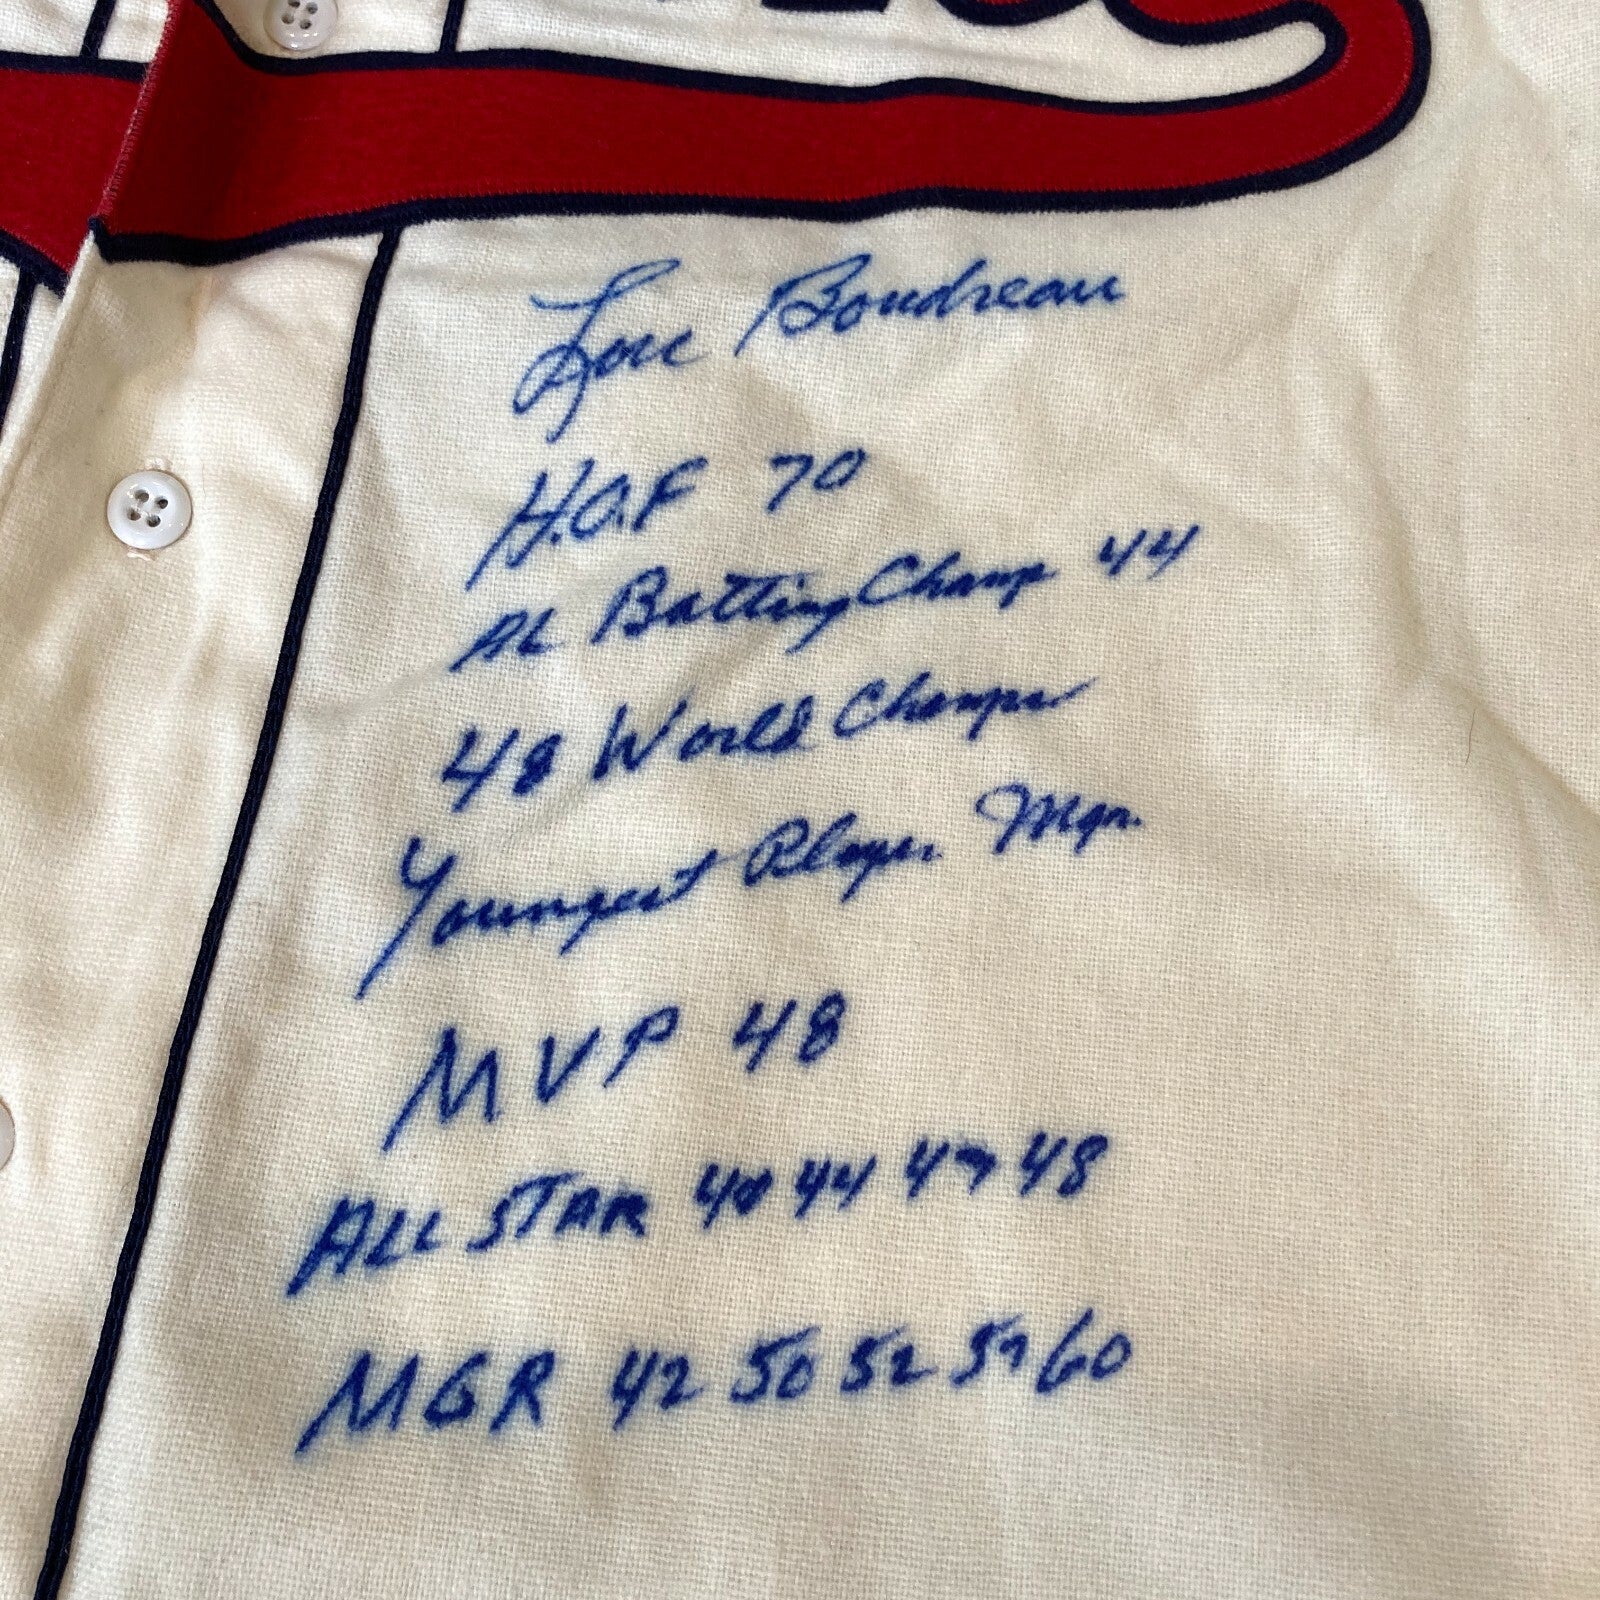 Lou Boudreau
H.O.F 70
AL Batting Champ 44
48 World Champs
Youngest Player Mgr.
MVP 48
ALL STAR 40 44 47 48
MGR 42 50 52 57 60